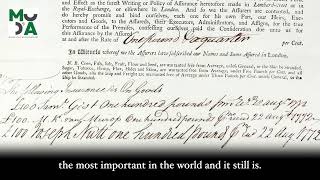 MU
DA
and Effect as in the fourth Writing or Policy of Assurance heretofore made in Lombard-street or in
the Royal-Exchange, or elsewhere in London. And so we the Assurers are contented, and do
hereby promise and bind ourselves, each one for his own Part, our Heirs, Exe-
cutors and Goods, to the Assured, their Executors, Administrators and Assigns, for the true
Performance of the Premises, confessing ourselves paid the Consideration due unto us for
this Assurance by the Assured
at and after the Rate of per Cent.
In Witness whereof we the Assurers have subscribed our Names and Sums Assured in London.
N. B. Corn, Fish, Salt, Fruit, Flour and Seed, are warranted free from Average, unless General, or the Ship be stranded.
Sugar, Tobacco, Hemp, Flax, Hides and Skins, are warranted free from Average, under Five Pounds per Cent. and all
other Goods, also the Ship and Freight are warranted free of Average under Three Pounds per Cent. unless General, or the
Ship be Stranded.
The following Insurance on the Goods
£100 one hundred pounds 20 augt 1772
£100 22 augt 1772
£100 Joseph Nutt one hundred pounds 22 aug 1772
the most important in the world and it still is.